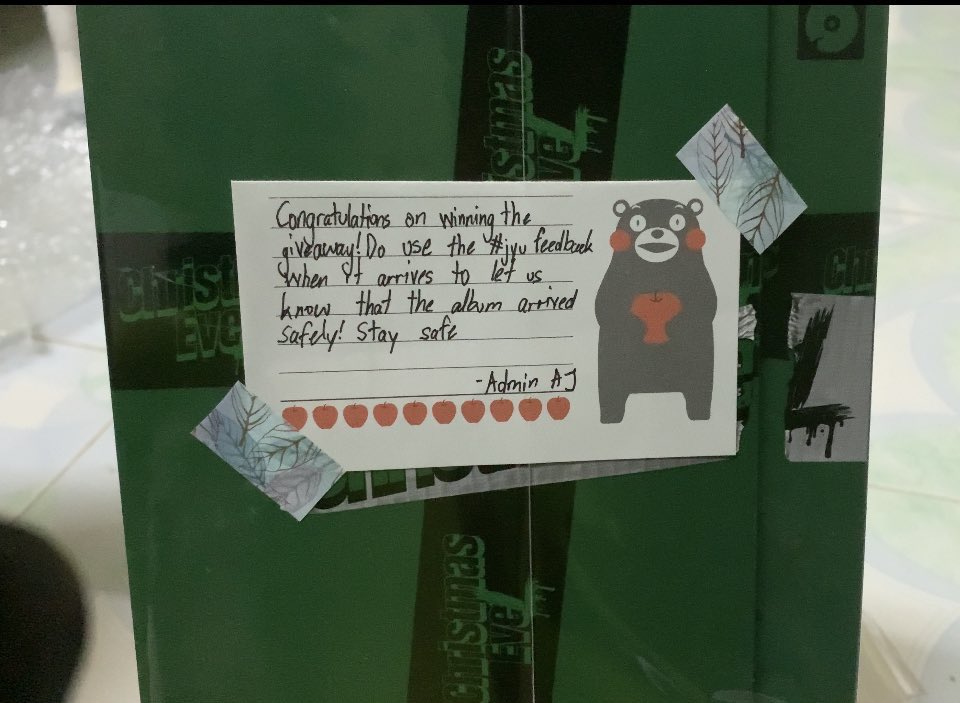 Christmas
EveL
Congratulations on winning the
giveaway! Do use the #jyu feedback
when it arrives to let us
know that the album arrived
safely! Stay safe
-Admin AJ
Christmas
EveL